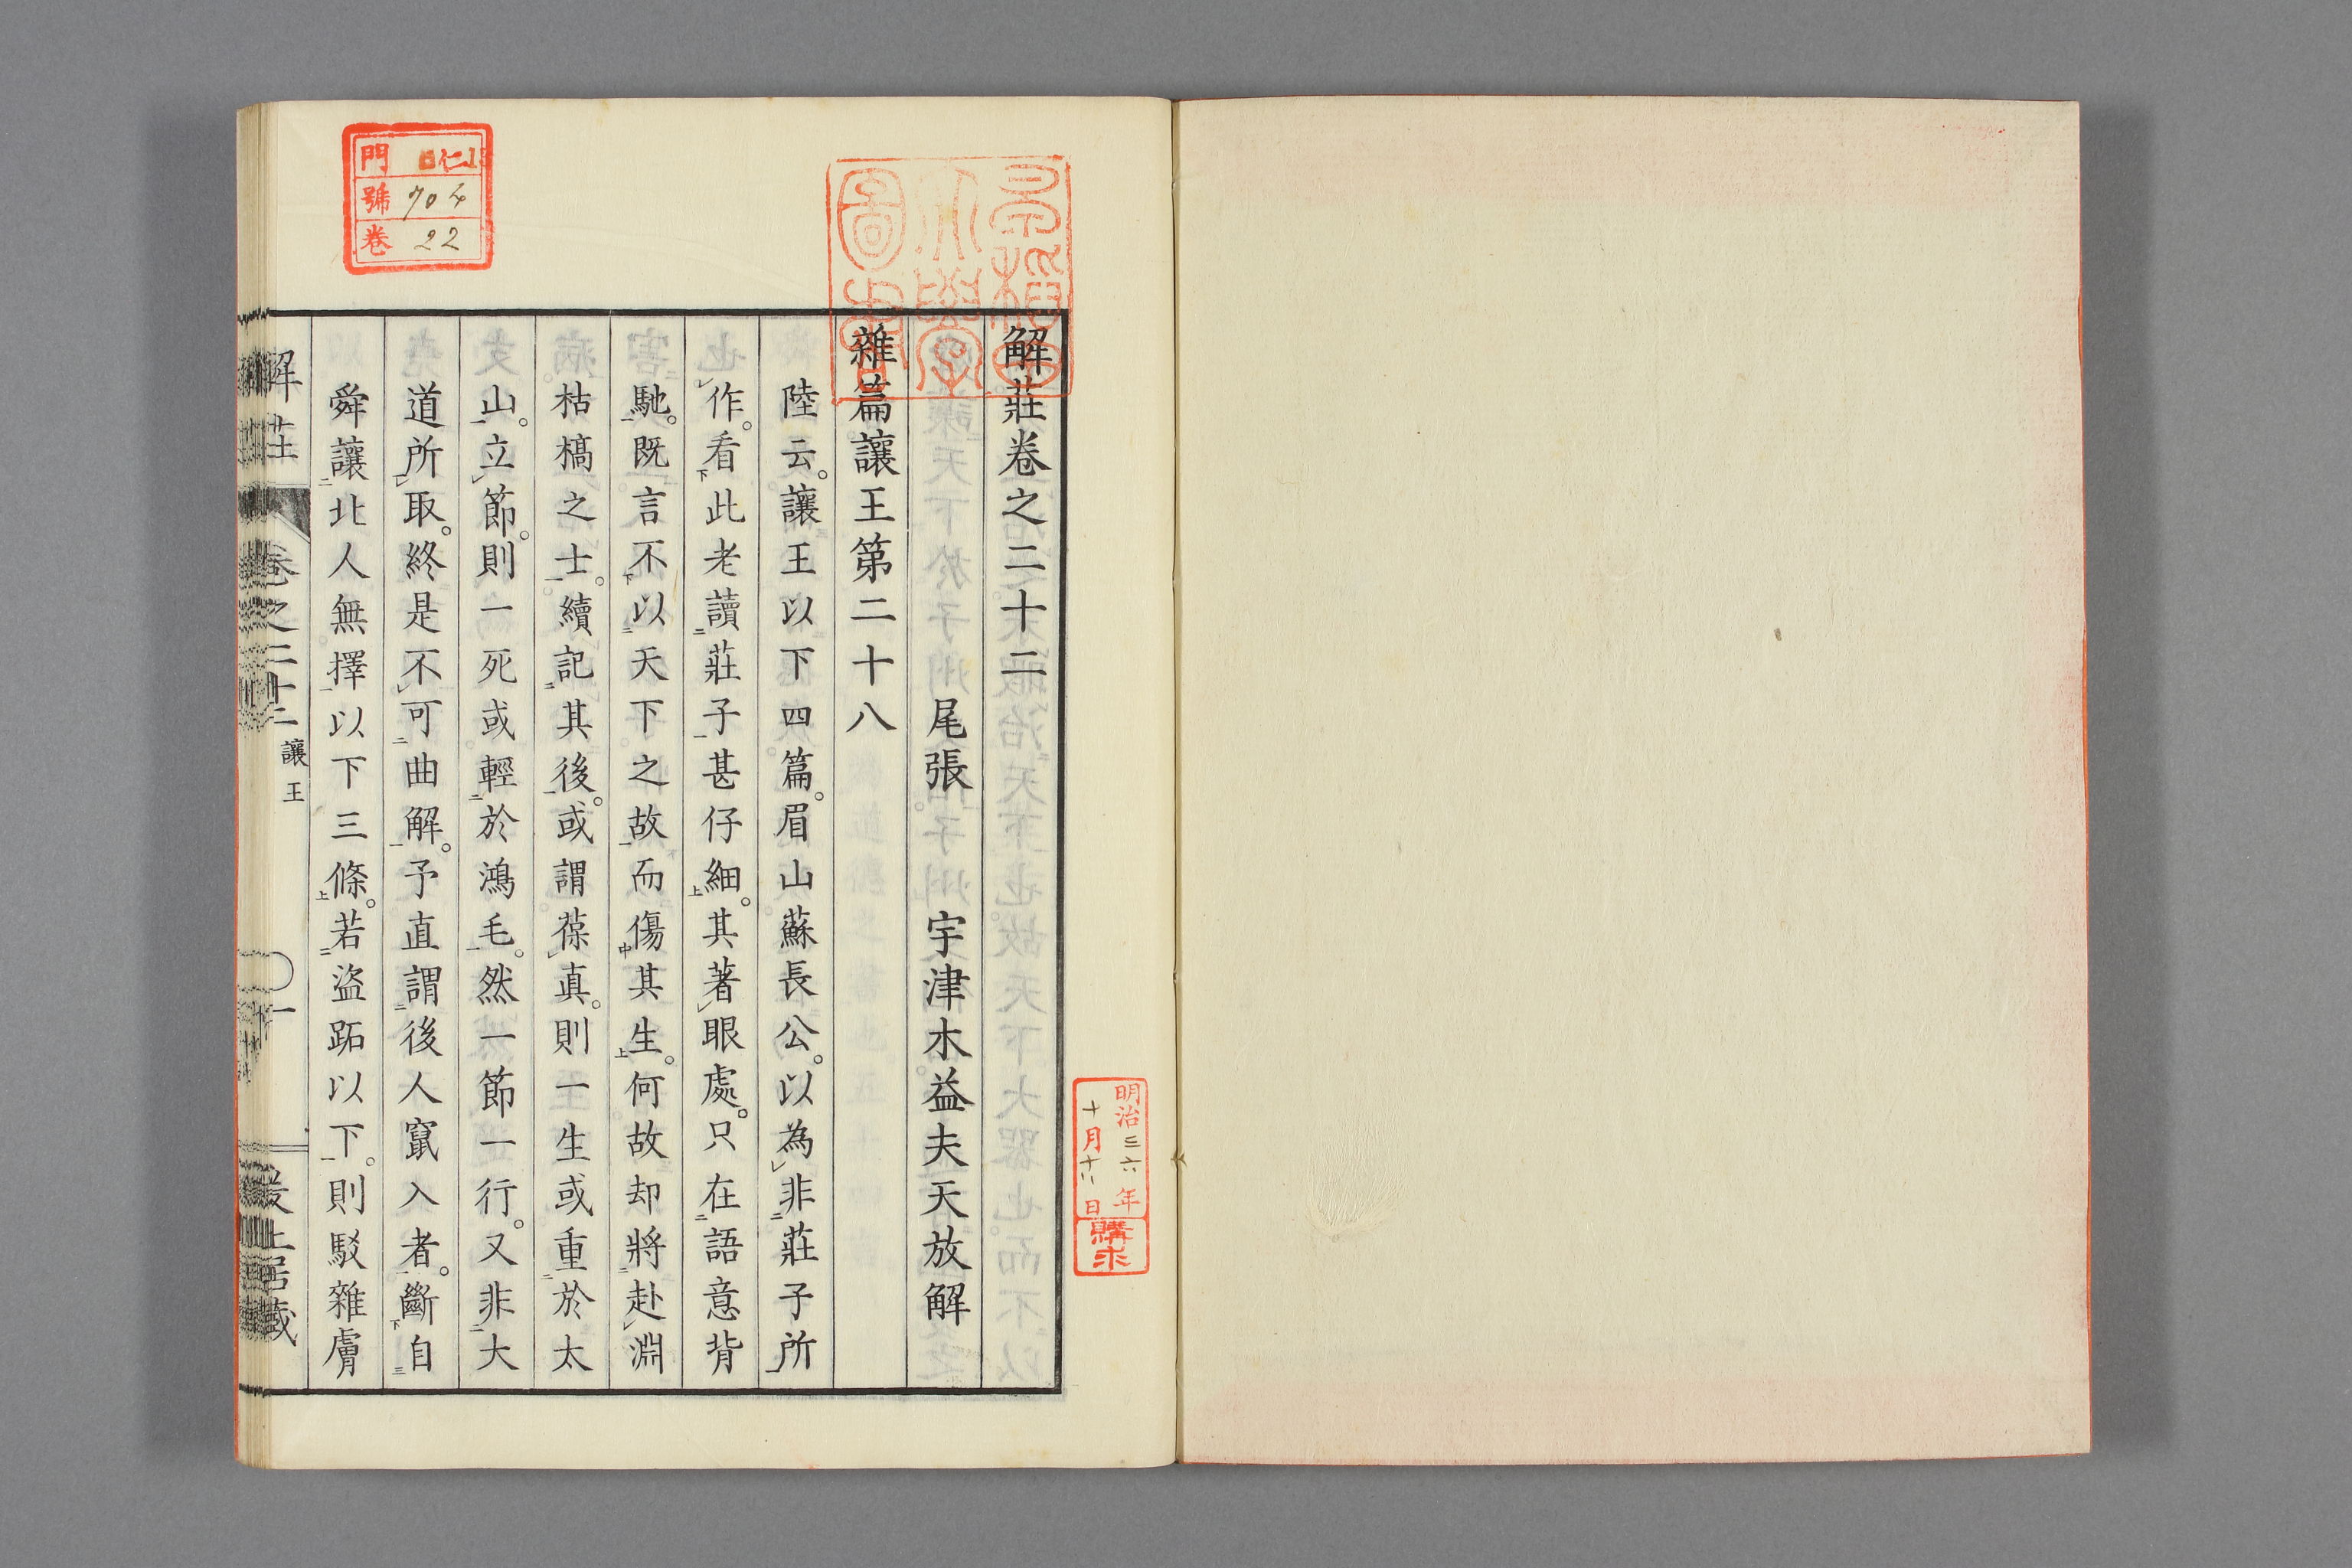 解莊卷之二十二
尾張　宇津木益夫天放解
雜篇讓王第二十八
陸云。讓王以下四篇。眉山蘇長公。以為非莊子所
作。看此老讀莊子甚仔細。其著眼處。只在語意背
馳。既言不以天下之故而傷其生。何故却將赴淵
枯槁之士。續記其後。或謂葆真。則一生或重於太
山。立節。則一死或輕於鴻毛。然一節一行。又非大
道所取。終是不可曲解。予直謂後人竄入者。斷自
舜讓北人無擇以下三條。若盜跖以下。則駁雜膚
讓王
門 仁13
號 704
卷 22
早稻田
大學
圖書
明治三六年
十月十八日
購求